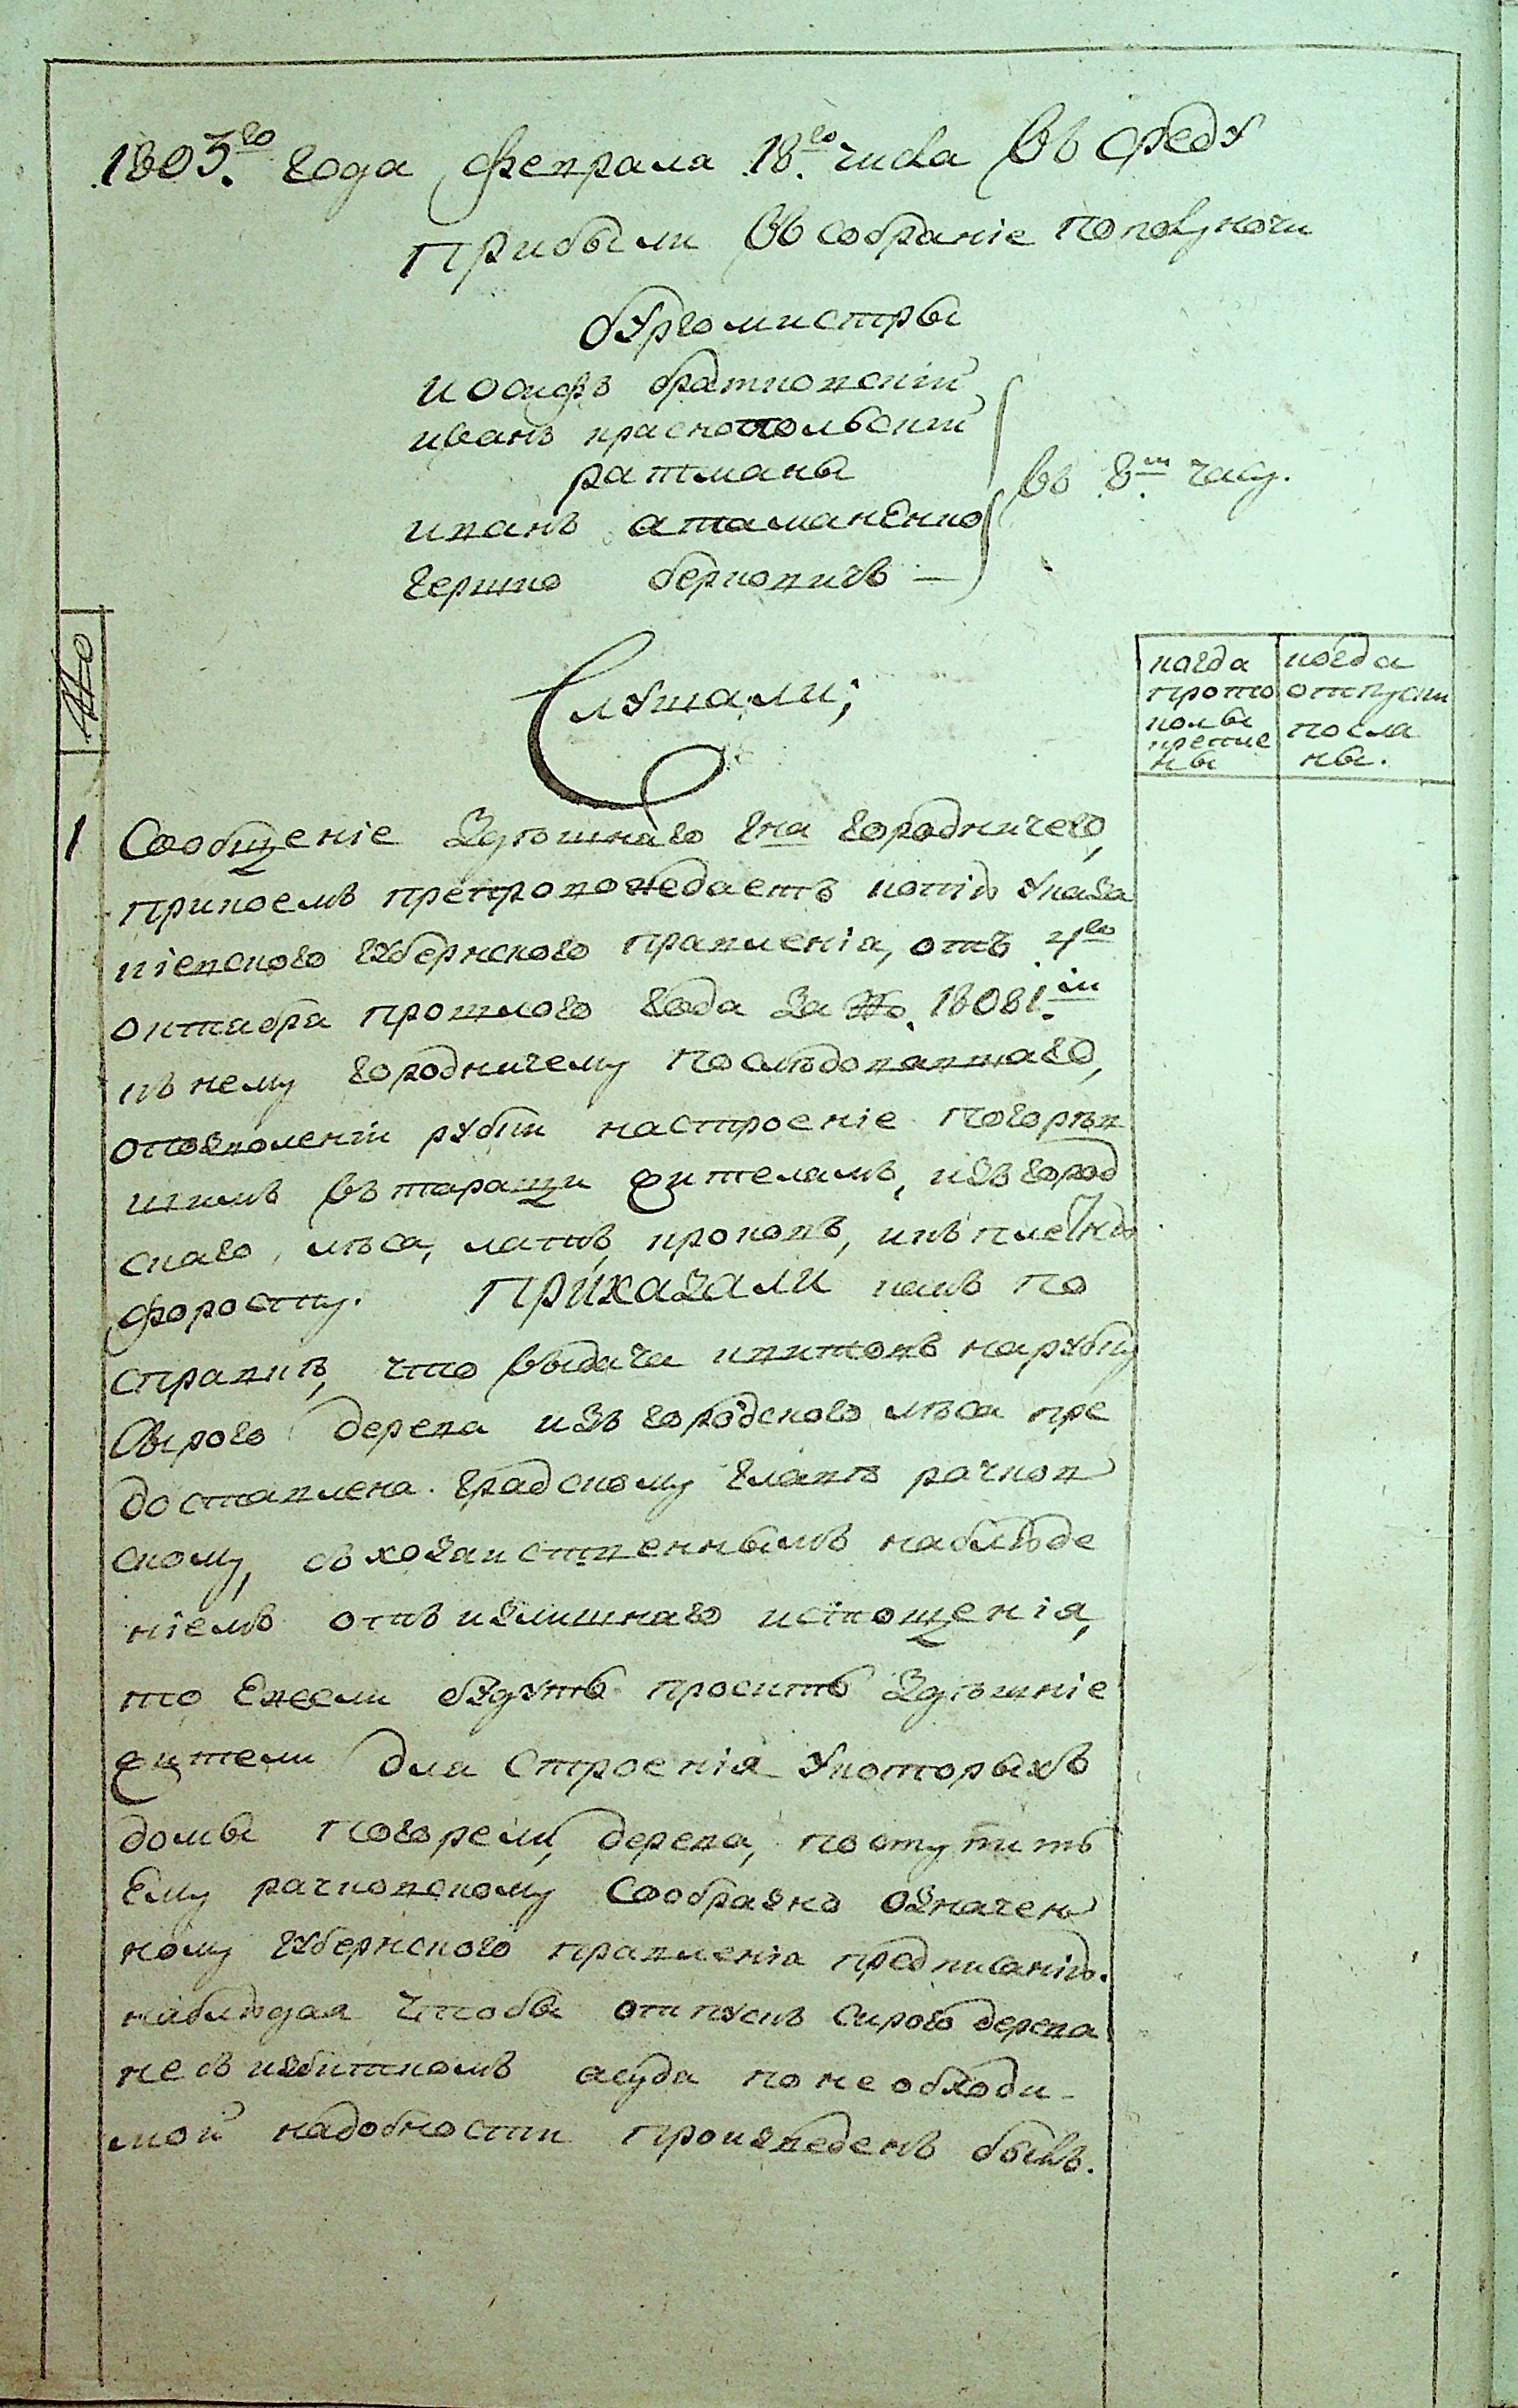 1803.го года февраля 18.го числа въ среду
Прибыли въ собраніе пополуночи
бургомистры
иосифъ братковскій
иванъ краснопольскій
ратманы
иванъ атаманенко
гершко берковичъ —
въ 8.м часу.
№
Слушали;
когда
прото
колы
крепле
ны
когда
отпуски
посла
ны.
1 Сообщеніе здѣшнаго гна городничего,
прикоемъ препровождаетъ копію указа
кіевского губернского правленія, отъ 4го
октабра прошлого года за № 18081.м
къ нему городничему последовавшаго,
опозволеніи рубки настроеніе погорѣв
шимъ въ таращи жителамъ, изъ город
скаго, лѣса, латъ, кроковъ, икъ плетню
форосту. Приказали какъ по
справкѣ, что выдача квитковъ нарубку
сырого дерева изъ городского лѣса пре
доставлена градскому главѣ рачков
скому, съ хозаиственнымъ наблюде
ніемъ отъ излишнаго истощенія,
то ежели будутъ просить здѣшніе
жители для строенія укоторыхъ
домы погорели, дерева, поступить
ему рачковскому сообразно означен
ному губернского правленіа предписанію.
наблюдая чтобы отпускъ сирого дерева
не съ избиткомъ асуда по необходи-
мой надобности произведенъ былъ.